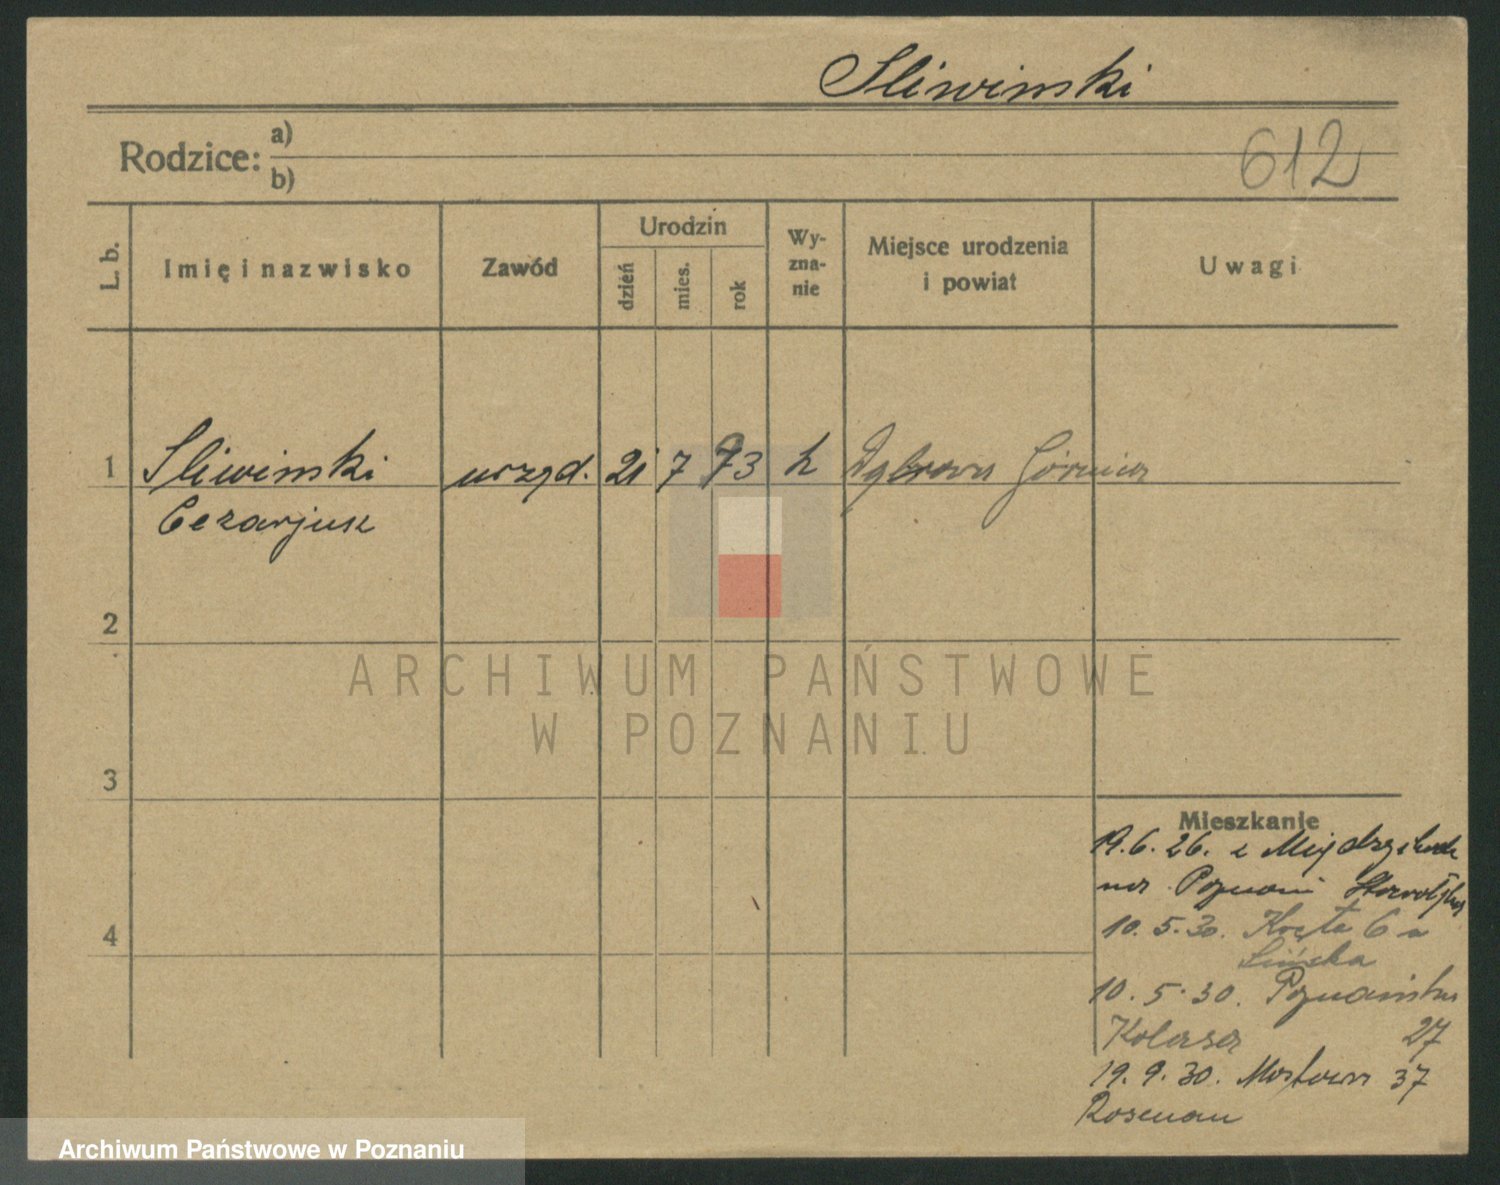 Sliwinski
Rodzice: a)
b)
612
L. b.
Imię i nazwisko
Zawód
Urodzin
dzień
mies.
rok
Wy-
zna-
nie
Miejsce urodzenia
i powiat
Uwagi
1 Sliwinski urzęd. 21 7 73 k Dąbrowa Górnica
Cezarjusz
2
3
4
ARCHIWUM PAŃSTWOWE
W POZNANIU
Mieszkanie
19. 6. 26. z
Poznań
10. 5. 30. Kręta 6 a
10. 5. 30. Poznańska
Kolasa 27
19. 9. 30. Mostowa 37
Rosenau
Archiwum Państwowe w Poznaniu